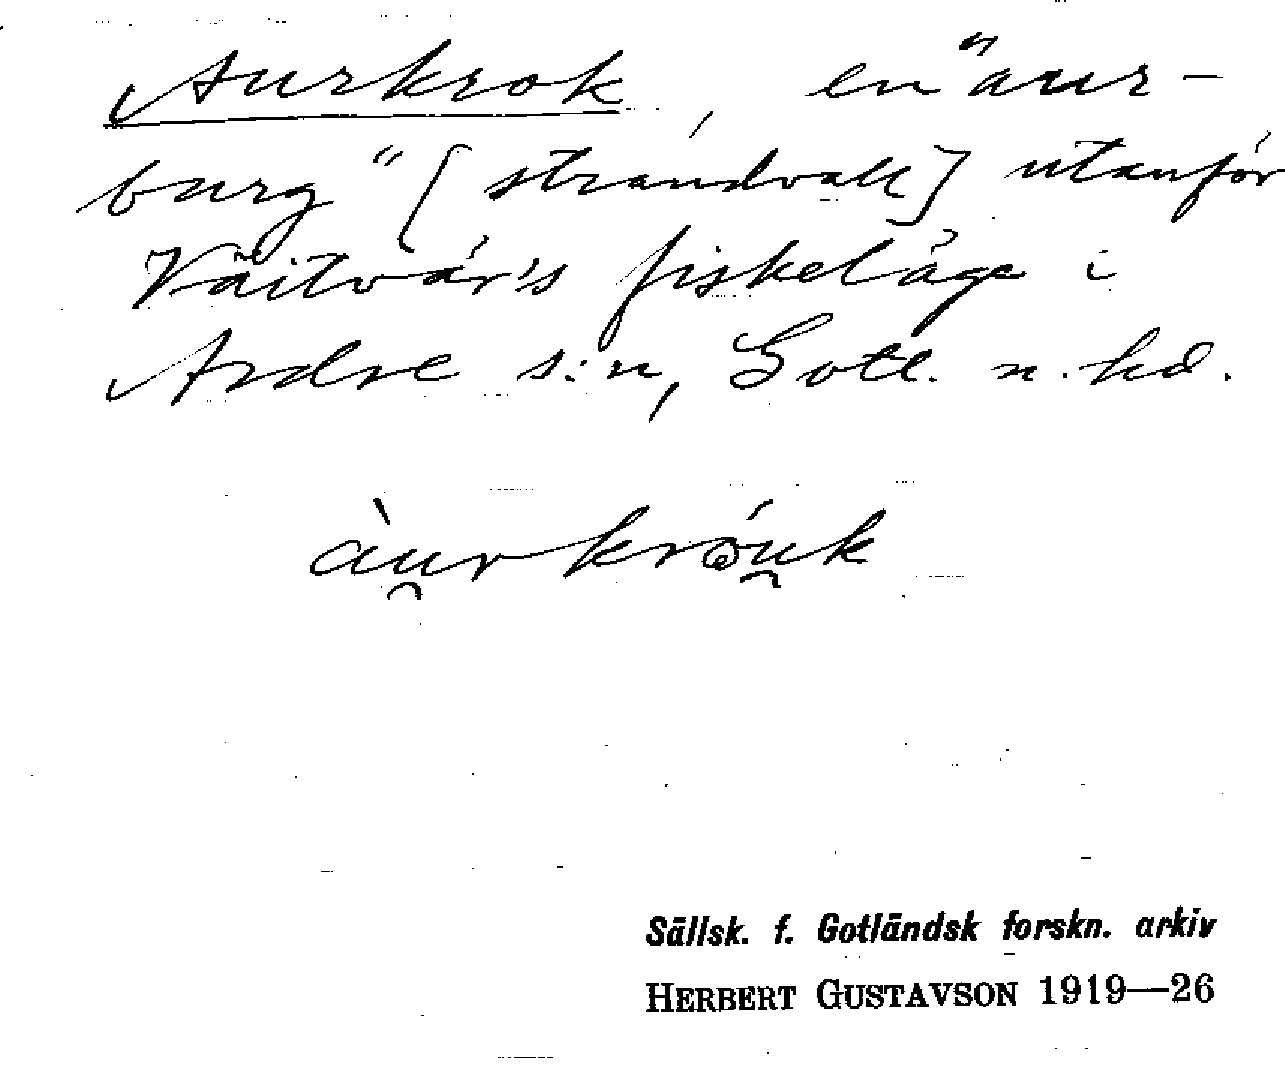 Aurkrok, en "aur-
burg" [strandvall] utanför
Väitvär's fiskeläge i
Ardre s:n, Gotl. n. hd.
àu̯rkrǿu̯k
Sällsk. f. Gotländsk forskn. arkiv
HERBERT GUSTAVSON 1919—26